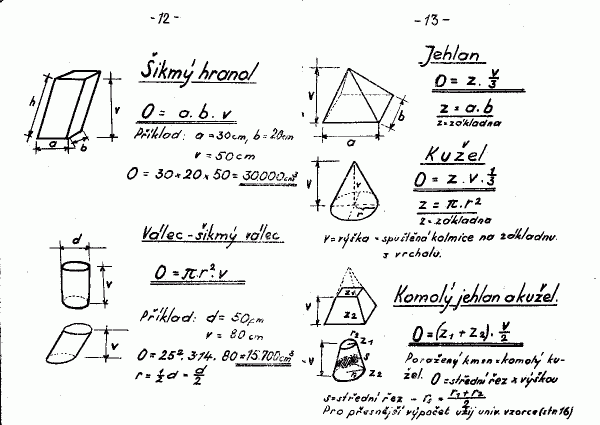 -12-
Šikmý hranol
h
v
a
b
O = a.b.v
Příklad: a=30cm, b=20cm
v=50cm
O = 30×20×50=30.000cm³
Válec-šikmý válec
d
v
v
O=π.r².v
Příklad: d=50cm
v=80cm
O=25².3·14.80=15.700cm³
r=½d=d/2
-13-
Jehlan
v
a
b
O = z.v/3
z=a.b
z=základna
Kužel
v
v
r
O = z.v.1/3
z=π.r²
z=základna
v=výška=spuštěná kolmice na základnu
s vrcholu.
Komolý jehlan a kužel.
v
z1
z2
O=(z1+z2).v/2
v
r2
z1
s
r1
z2
Poražený kmen=komolý ku-
žel. O=střední řez x výškou
s=střední řez - rs = r1+r2/2
Pro přesnější výpočet užij univ. vzorce(str.16)